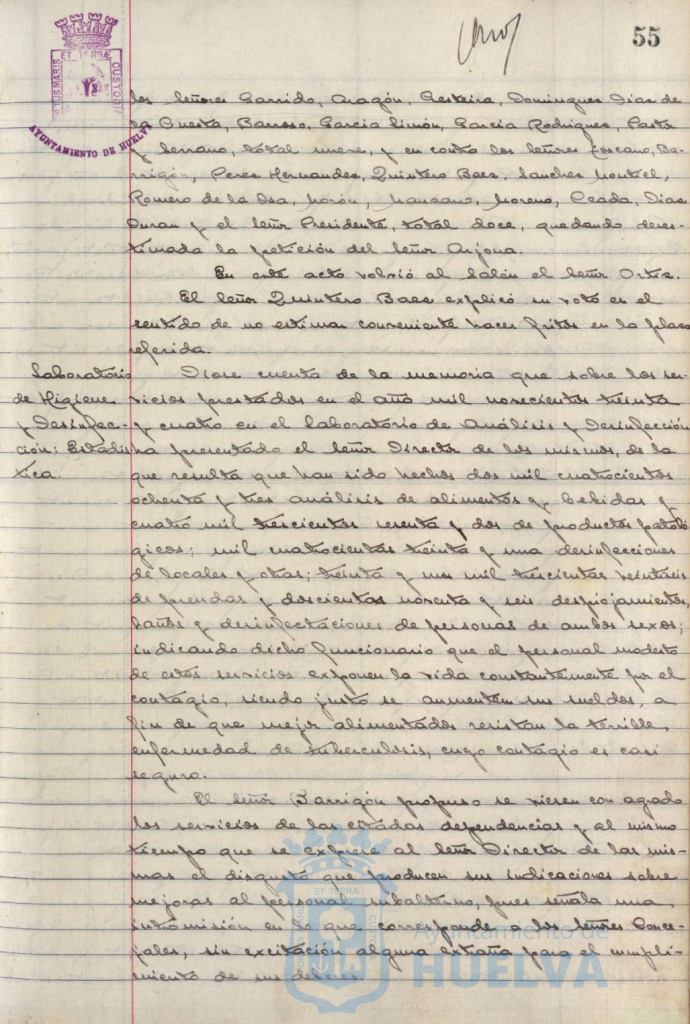 55
PORTUS MARIS ET TERRÆ CUSTODIA
AYUNTAMIENTO DE HUELVA
los Señores Garrido, Aragón, Gesteira, Domínguez, Díaz de
la Cuesta, Barroso, García Limón, García Rodríguez, Pastor
y Serrano, total nueve, y en contra los Señores Toscano, Ba-
rrigón, Perez Hernandez, Quintero Baez, Sanchez Montiel,
Romero de la Osa, Morón, Manzano, Moreno, Ceada, Díaz
Duran y el Señor Presidente, total doce, quedando deses-
timada la petición del Señor Arjona.
En este acto volvió al Salón el Señor Ortiz.
El Señor Quintero Baez explicó su voto en el
sentido de no estimar conveniente hacer fritos en la plaza
referida.
Laboratorio
de Higiene
y Desinfec-
ción: Estadís
tica.
Diose cuenta de la memoria que sobre los ser-
vicios prestados en el año mil novecientos treinta
y cuatro en el laboratorio de Análisis y Desinfección
ha presentado el Señor Director de los mismos, de la
que resulta que han sido hechos dos mil cuatrocientos
ochenta y tres análisis de alimentos y bebidas y
cuatro mil trescientos sesenta y dos de productos patoló
gicos; mil cuatrocientas treinta y una desinfecciones
de locales y otras; treinta y un mil trescientas veintiseis
de prendas y doscientas noventa y seis despiojamientos,
baños y desinfectaciones de personas de ambos sexos;
indicando dicho funcionario que el personal modesto
de estos servicios exponen la vida constantemente por el
contagio, siendo justo se aumenten sus sueldos, a
fin de que mejor alimentados resistan la terrible
enfermedad de tuberculosis, cuyo contagio es casi
seguro.
El Señor Barrigón propuso se viesen con agrado
los servicios de las citadas dependencias y al mismo
tiempo que se exprese al Señor Director de las mis-
mas el disgusto que producen sus indicaciones sobre
mejoras al personal subalterno, pues señala una
intromisión en lo que corresponde a los Señores Conce-
jales, sin excitación alguna extraña para el cumpli-
miento de sus deberes.
Ayuntamiento de
HUELVA